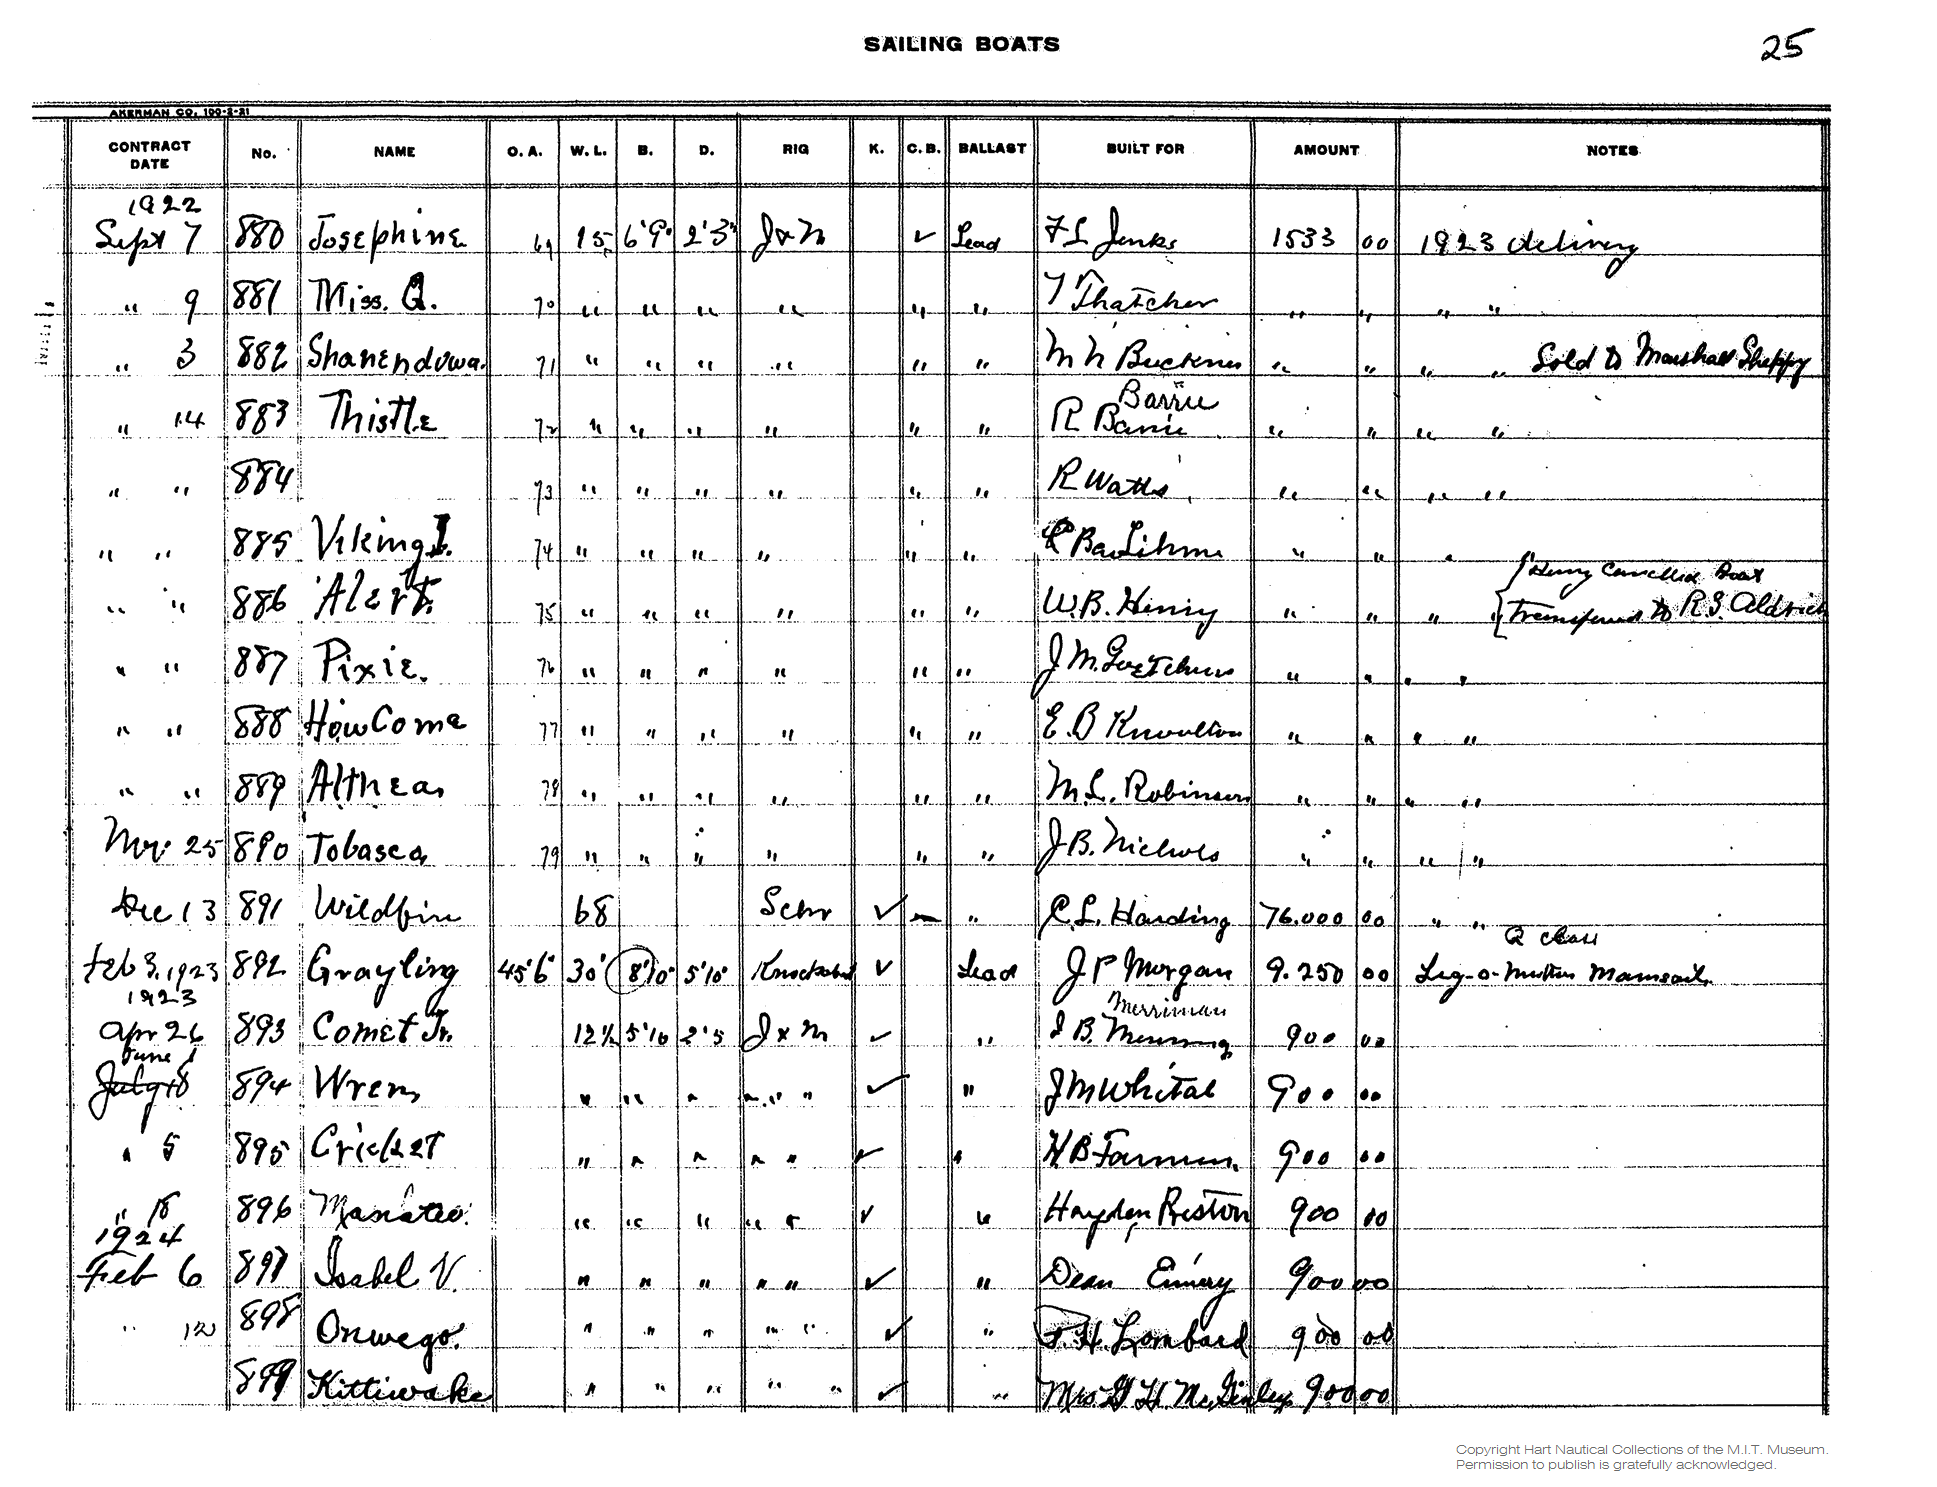 SAILING BOATS
25
AKERMAN CO. 100-2-21
CONTRACT DATE No. NAME O. A. W. L. B. D. RIG K. C. B. BALLAST BUILT FOR AMOUNT NOTES
1922
Sept 7 880 Josephine 69 15 6'9" 2'3" J & M ✓ Lead F L Jenks 1533 00 1923 delivery
" 9 881 Miss. Q. 70 " " " " " " T Thatcher " " " "
" 3 882 Shanendowa. 71 " " " " " " " " " " Sold to Marshall Sheppy
Barrie
" 14 883 Thistle 72 " " " " " " R Barrie " " " "
" " 884 73 " " " " " " R Watts " " " "
" " 885 Viking I. 74 " " " " " " " " "
Henry Cancelled Boat
" " 886 Alert. 75 " " " " " " W. B. Henry " " " " Transferred to R. S. Aldrich
" " 887 Pixie. 76 " " " " " " J M. Goetchius " " " "
" " 888 How Come 77 " " " " " " E. B Knowlton " " " "
" " 889 Althea 78 " " " " " " M. L. Robinson " " " "
Nov. 25 890 Tobasca 79 " " " " " " J. B. Nichols " " " "
Dec 13 891 Wildfire 68 Schr ✓ " C. L. Harding 76.000 00 " "
Q class
Feb 3. 1923 892 Grayling 45'6" 30' 8'10" 5'10" Knockabout ✓ Lead J P Morgan 9.250 00 Leg-o-Mutton Mainsail.
1923 Merriman
Apr 26 893 Comet Jr. 12½ 5'10 2'5 J & M ✓ " I B. 900 00
June 1
July 18 894 Wren " " " " " " ✓ " J M Whital 900 00
" 5 895 Cricket " " " " " ✓ " H B Farmer. 900 00
" 18 896 Manateo. " " " " " ✓ " Hayden Preston 900 00
1924
Feb 6 897 Isabel V. " " " " " ✓ " Dean Emery 900 00
" 12 898 Onwego. " " " " " ✓ " F. H. Lombard 900 00
899 Kittiwake " " " " " ✓ " Mrs. G H. McGinley 900 00
Copyright Hart Nautical Collections of the M.I.T. Museum.
Permission to publish is gratefully acknowledged.